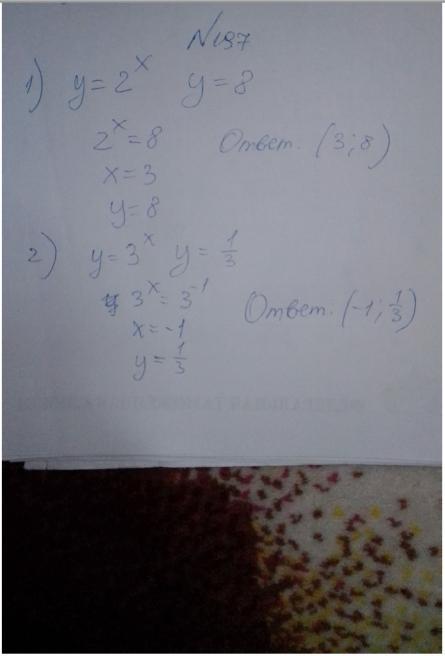 №197
1) y=2^x y=8
2^x=8 Ответ. (3;8)
x=3
y=8
2) y=3^x y=1/3
3^x=3^-1 Ответ. (-1;1/3)
x=-1
y=1/3